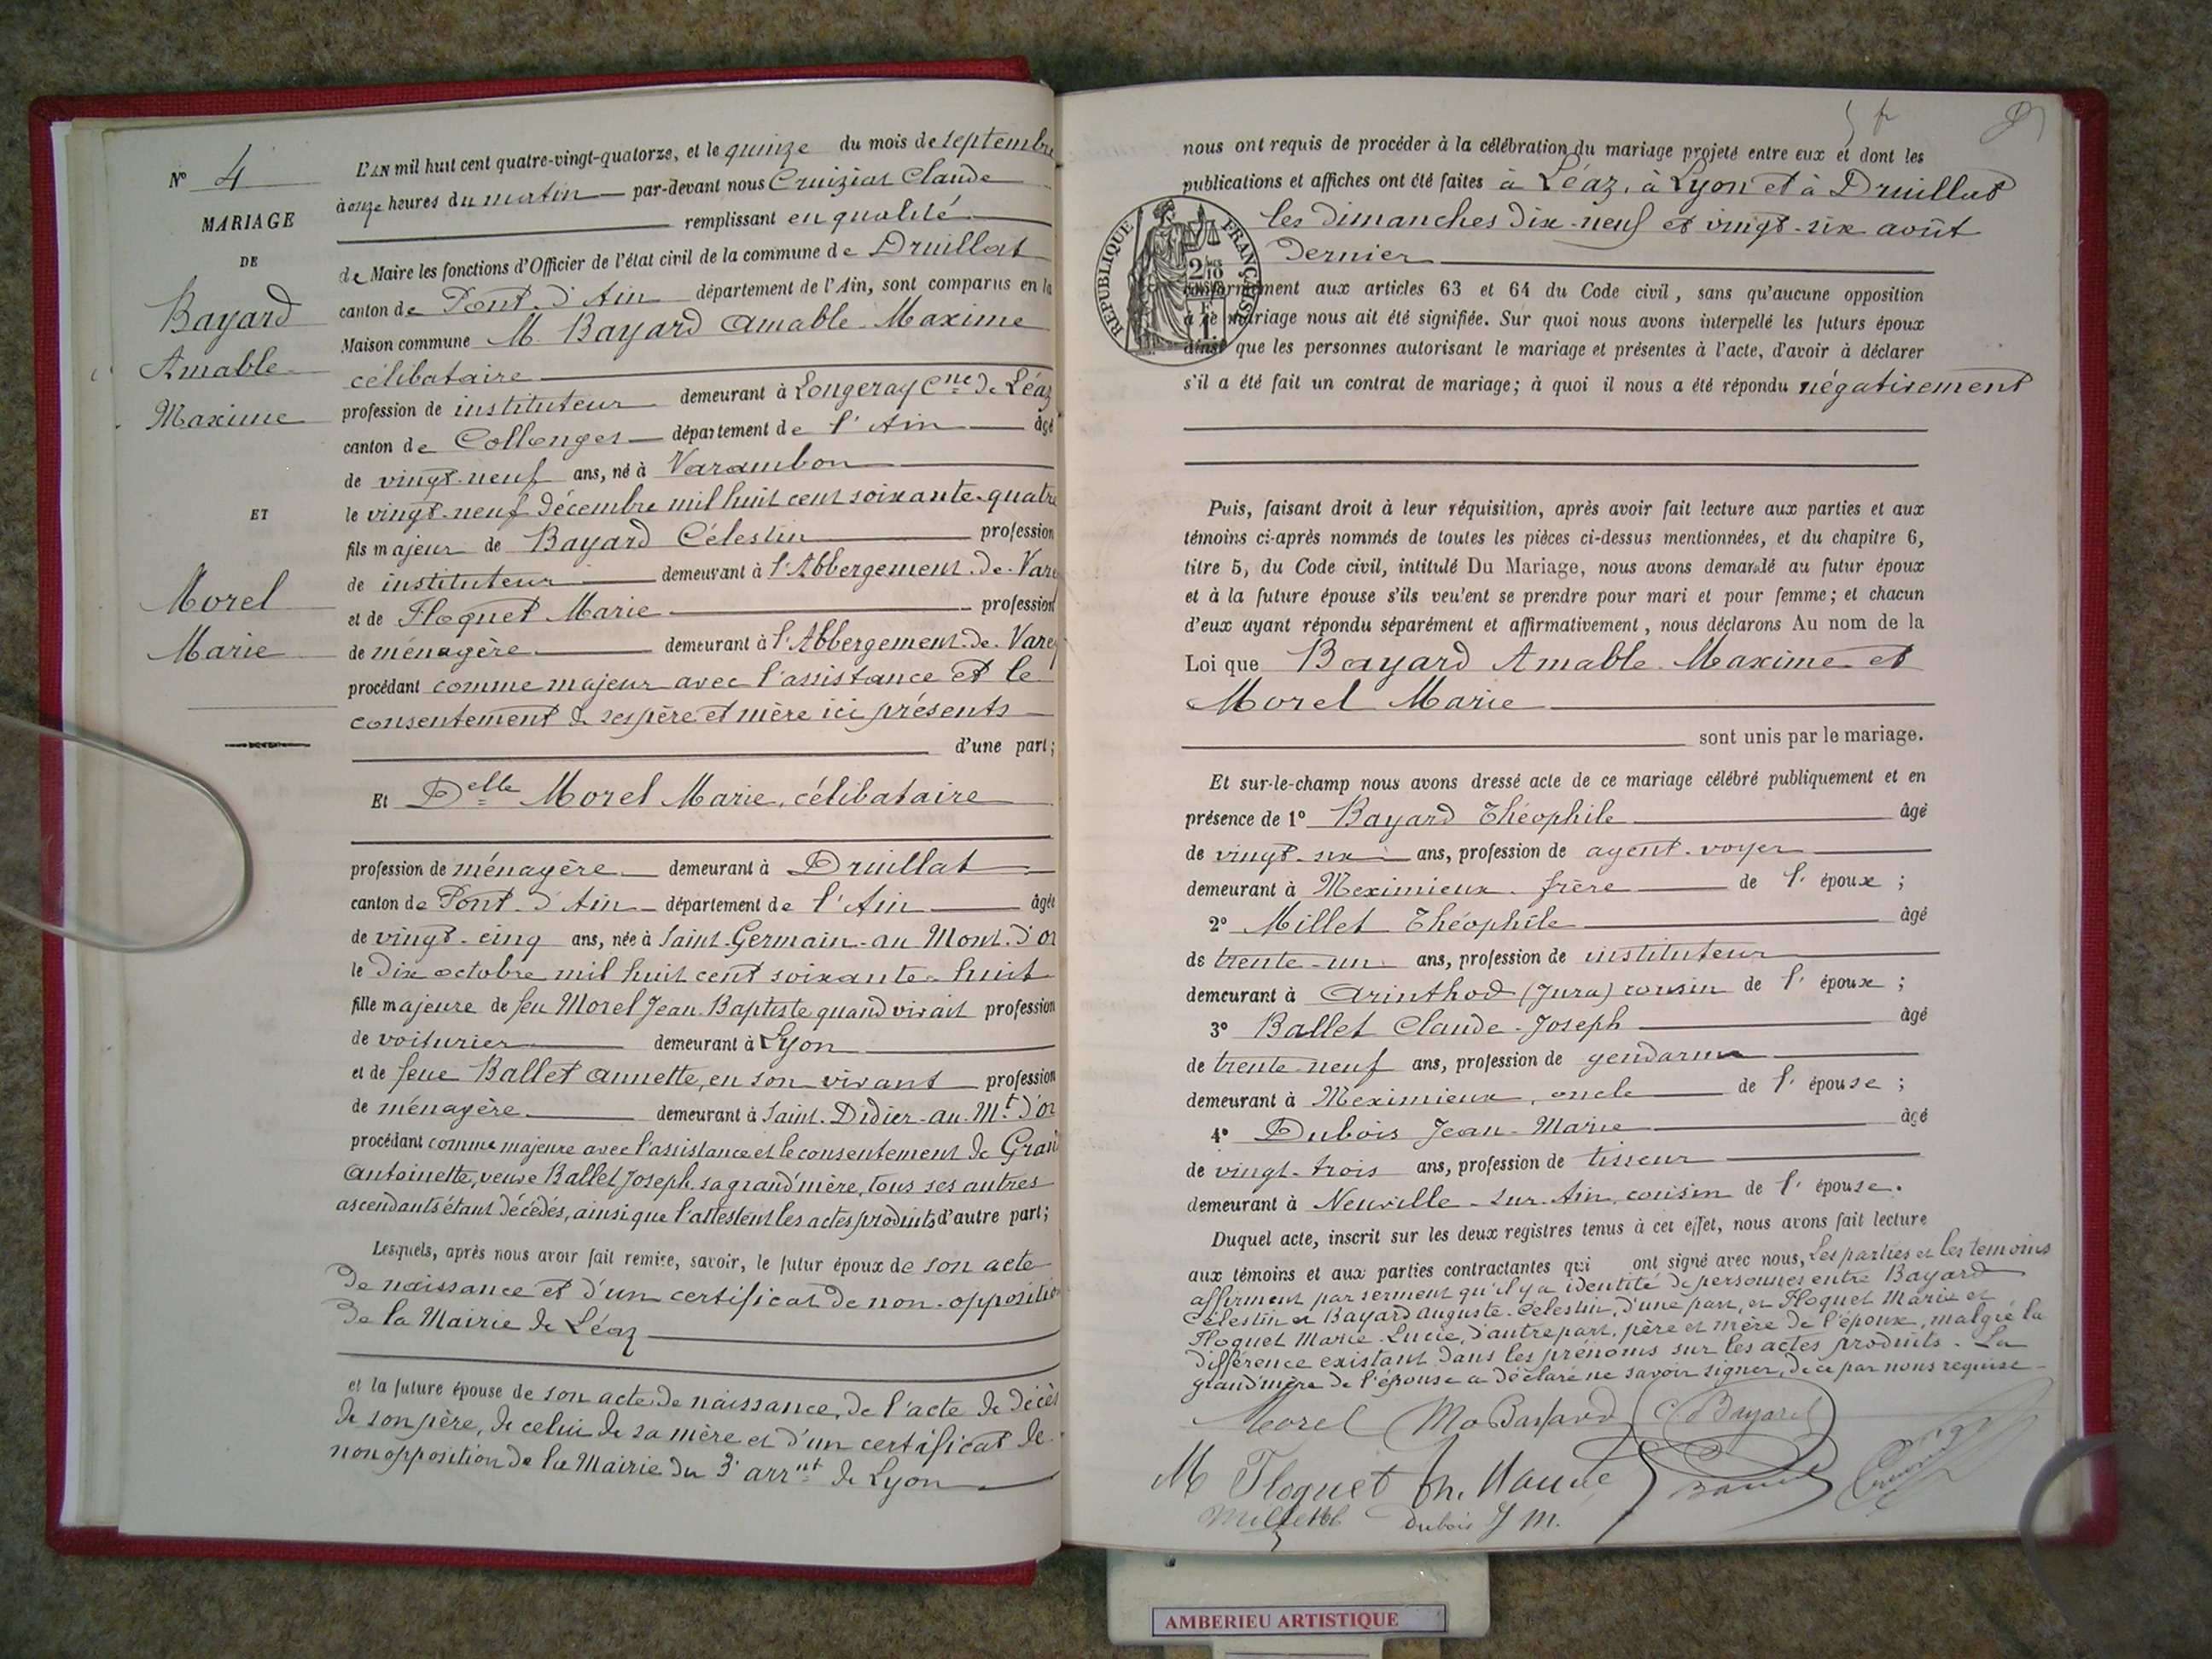 N° 4
MARIAGE
DE
Bayard
Amable
Maxime
ET
Morel
Marie
L'AN mil huit cent quatre-vingt-quatorze, et le quinze du mois de septembre
à onze heures du matin par-devant nous Cruiziat Claude
remplissant en qualité
de Maire les fonctions d'Officier de l'état civil de la commune de Druillat
canton de Pont-d'Ain département de l'Ain, sont comparus en la
Maison commune M. Bayard Amable-Maxime
célibataire
profession de instituteur demeurant à Longeray Cne de Léaz
canton de Collonges département de l'Ain âgé
de vingt-neuf ans, né à Varambon
le vingt-neuf décembre mil huit cent soixante-quatre
fils majeur de Bayard Célestin profession
de instituteur demeurant à l'Abbergement-de-Varey
et de Floquet Marie profession
de ménagère demeurant à l'Abbergement-de-Varey
procédant comme majeur avec l'assistance et le
consentement de ses père et mère ici présents
d'une part;
Et Delle Morel Marie, célibataire
profession de ménagère demeurant à Druillat
canton de Pont-d'Ain département de l'Ain âgée
de vingt-cinq ans, née à Saint-Germain-au Mont-d'Or
le dix octobre mil huit cent soixante-huit
fille majeure de feu Morel Jean-Baptiste quand vivait profession
de voiturier demeurant à Lyon
et de feue Ballet Annette, en son vivant profession
de ménagère demeurant à Saint-Didier-au-Mt d'Or
procédant comme majeure avec l'assistance et le consentement de
Antoinette, veuve Ballet Joseph, sa grand'mère, tous ses autres
ascendants étant décédés, ainsi que l'attestent les actes produits d'autre part;
Lesquels, après nous avoir fait remise, savoir, le futur époux de son acte
de naissance et d'un certificat de non-opposition
de la Mairie de Léaz
et la future épouse de son acte de naissance, de l'acte de décès
de son père, de celui de sa mère et d'un certificat de
non opposition de la Mairie du 3e arrnt de Lyon
5 fr
nous ont requis de procéder à la célébration du mariage projeté entre eux et dont les
publications et affiches ont été faites à Léaz, à Lyon et à Druillat
les dimanches dix-neuf et vingt-six août
dernier
RÉPUBLIQUE FRANÇAISE
conformément aux articles 63 et 64 du Code civil, sans qu'aucune opposition
à ce mariage nous ait été signifiée. Sur quoi nous avons interpellé les futurs époux
ainsi que les personnes autorisant le mariage et présentes à l'acte, d'avoir à déclarer
s'il a été fait un contrat de mariage; à quoi il nous a été répondu négativement
Puis, faisant droit à leur réquisition, après avoir fait lecture aux parties et aux
témoins ci-après nommés de toutes les pièces ci-dessus mentionnées, et du chapitre 6,
titre 5, du Code civil, intitulé Du Mariage, nous avons demandé au futur époux
et à la future épouse s'ils veulent se prendre pour mari et pour femme; et chacun
d'eux ayant répondu séparément et affirmativement, nous déclarons Au nom de la
Loi que Bayard Amable-Maxime et
Morel Marie
sont unis par le mariage.
Et sur-le-champ nous avons dressé acte de ce mariage célébré publiquement et en
présence de 1° Bayard Théophile âgé
de vingt-six ans, profession de agent-voyer
demeurant à Meximieux, frère de l'époux;
2° Millet Théophile âgé
de trente-un ans, profession de instituteur
demeurant à Arinthod (Jura) cousin de l'époux;
3° Ballet Claude-Joseph âgé
de trente-neuf ans, profession de gendarme
demeurant à Meximieux, oncle de l'épouse;
4° Dubois Jean-Marie âgé
de vingt-trois ans, profession de tisseur
demeurant à Neuville-sur-Ain, cousin de l'épouse.
Duquel acte, inscrit sur les deux registres tenus à cet effet, nous avons fait lecture
aux témoins et aux parties contractantes qui ont signé avec nous, Les parties et les témoins
affirment par serment qu'il y a identité de personnes entre Bayard
Célestin et Bayard Auguste-Célestin, d'une part, et Floquet Marie et
Floquet Marie-Lucie, d'autre part, père et mère de l'époux, malgré la
différence existant dans les prénoms sur les actes produits. La
grand'mère de l'épouse a déclaré ne savoir signer, de ce par nous requise
Morel Ma Bayard C Bayard
M Floquet
Millet Dubois J M.
AMBERIEU ARTISTIQUE